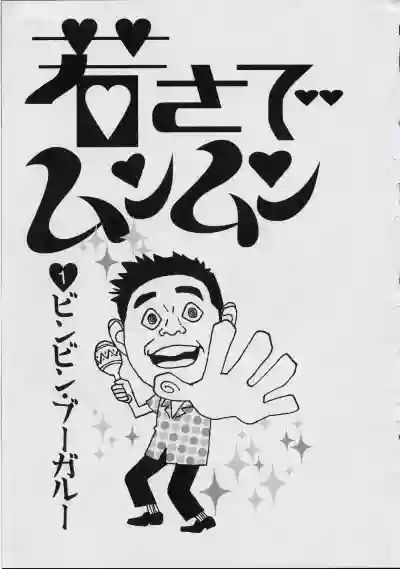 若さで
ムンムン
1 ビンビン・ブーガルー